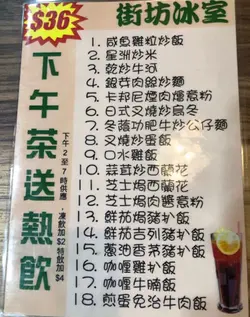 $36
街坊冰室
下午茶送熱飲
下午2至7時供應
凍飲加$2特飲加$4
1. 咸魚雞粒炒飯
2. 星洲炒米
3. 乾炒牛河
4. 銀芽肉絲炒麵
5. 卡邦尼煙肉燴意粉
6. 日式叉燒炒烏冬
7. 冬蔭功肥牛炒公仔麵
8. 叉燒炒蛋飯
9. 口水雞飯
10. 蒜茸炒西蘭花
11. 芝士焗西蘭花
12. 芝士焗肉醬意粉
13. 鮮茄焗豬扒飯
14. 鮮茄吉列豬扒飯
15. 蔥油香茅豬扒飯
16. 咖喱雞扒飯
17. 咖喱牛腩飯
18. 煎蛋免治牛肉飯